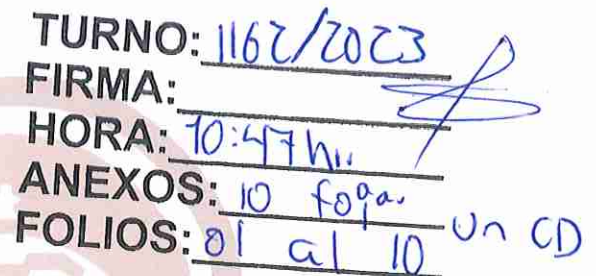 TURNO: 1162/2023
FIRMA:
HORA: 10:47 hr.
ANEXOS: 10 foja. Un CD
FOLIOS: 01 al 10